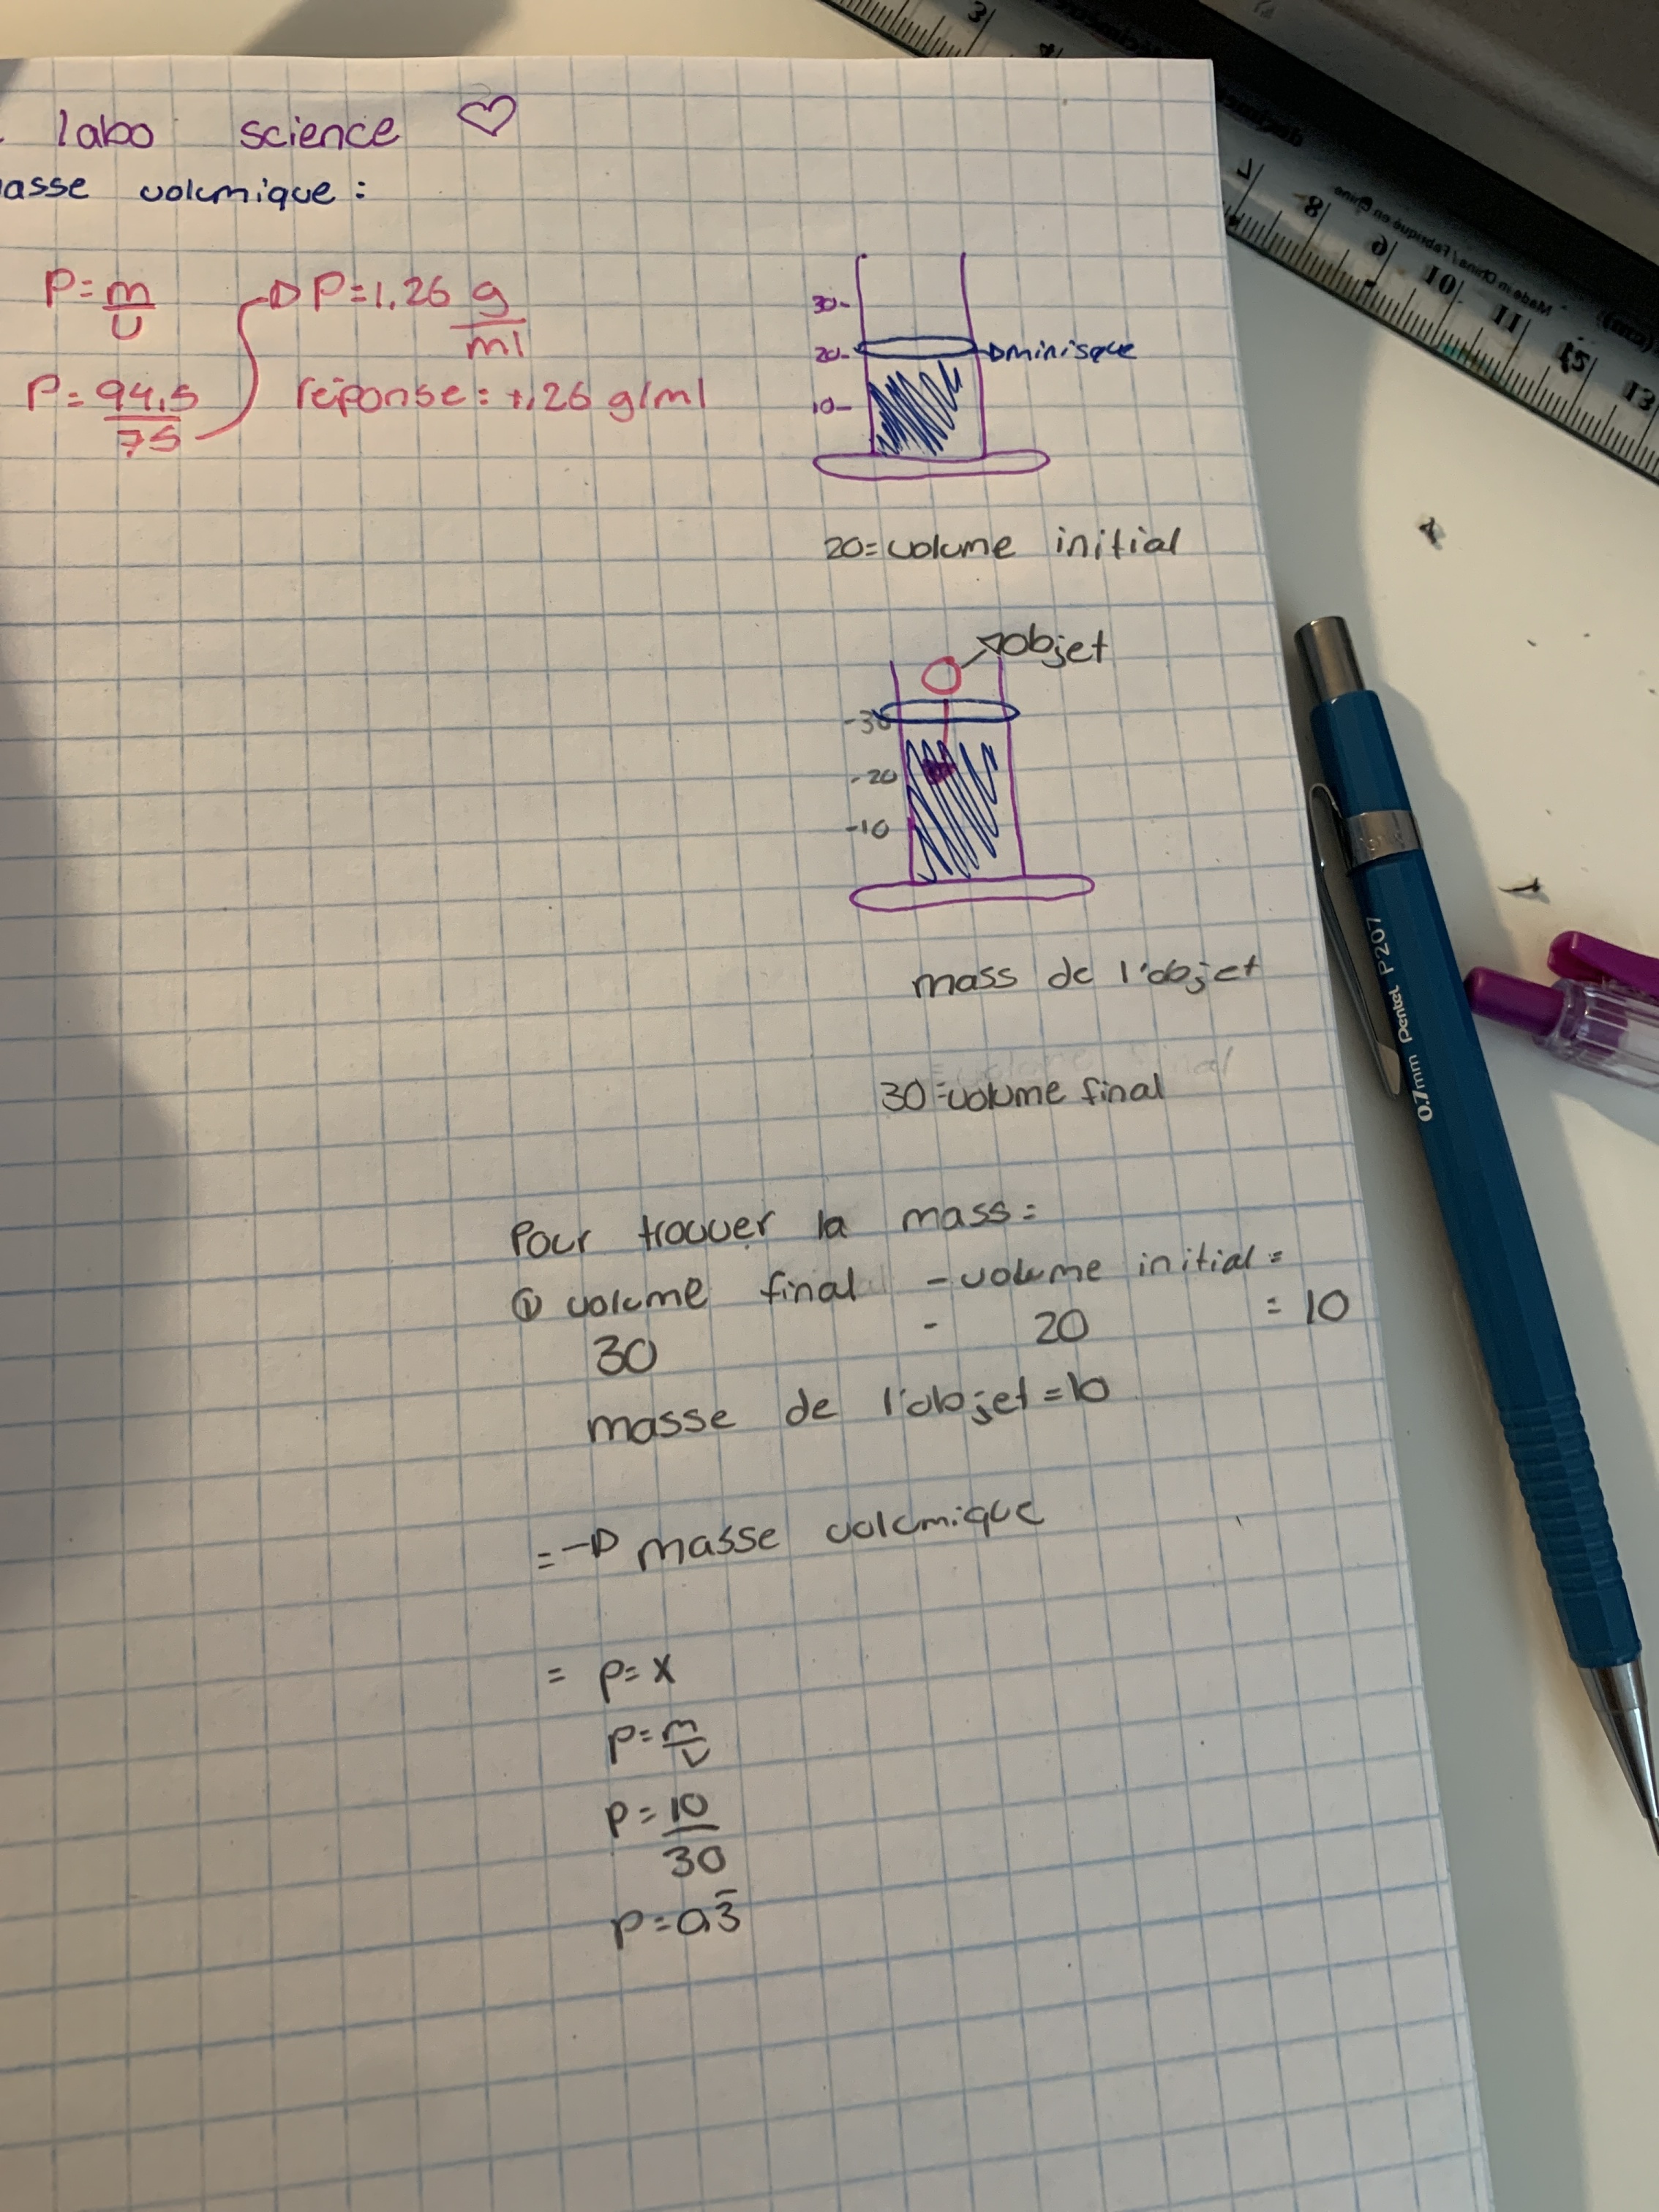 labo science ♡
asse volumique:
P=m/v
P=1,26 g/ml
P=94,5/75
réponse: 1,26 g/ml
30-
20-
minisque
10-
20=volume initial
objet
-30
-20
-10
mass de l'objet
30=volume final
Pour trouver la mass:
① volume final - volume initial=
30 - 20 = 10
masse de l'objet=10
= masse volumique
= p=x
p=m/v
p=10/30
p=0,3̅
3
7
8
9
10
11
12
13
Made in China / Fabriqué en Chine
0.7mm Pentel P207